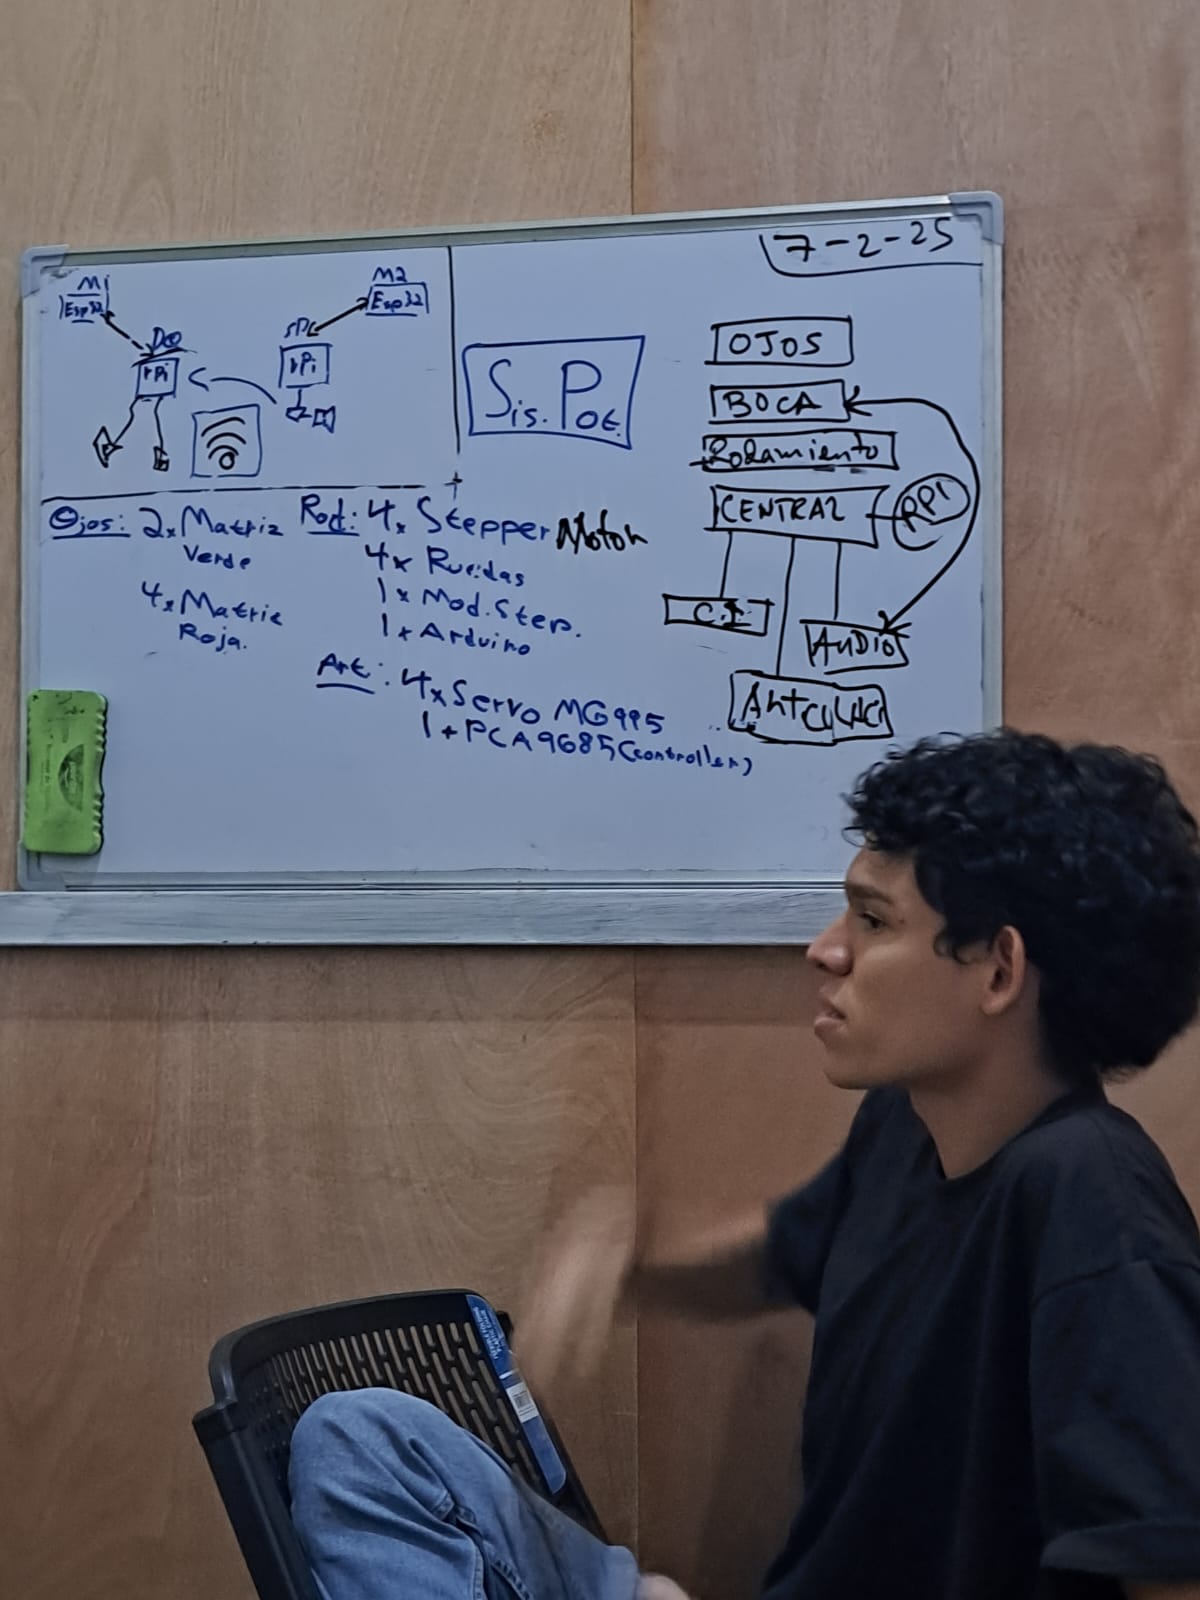 7-2-25
M1
Esp32
M2
Esp32
rPi
rPi
Sis. Pot.
OJOS
BOCA
Rodamiento
CENTRAL
RPI
C.I
AUDIO
Ojos: 2x Matriz
Verde
4x Matriz
Roja.
Rod: 4x Stepper Motor
4x Ruedas
1x Mod. Step.
1x Arduino
Art: 4x Servo MG995
1x PCA9685 (controller)